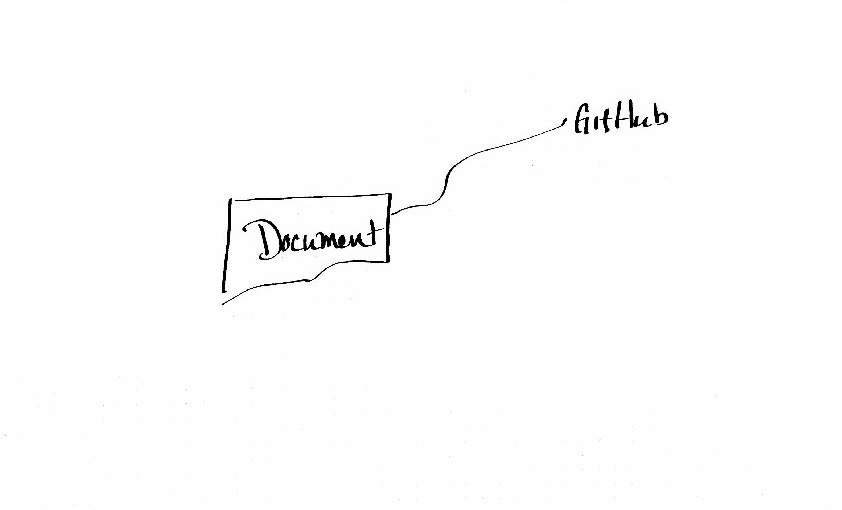 GitHub
Document